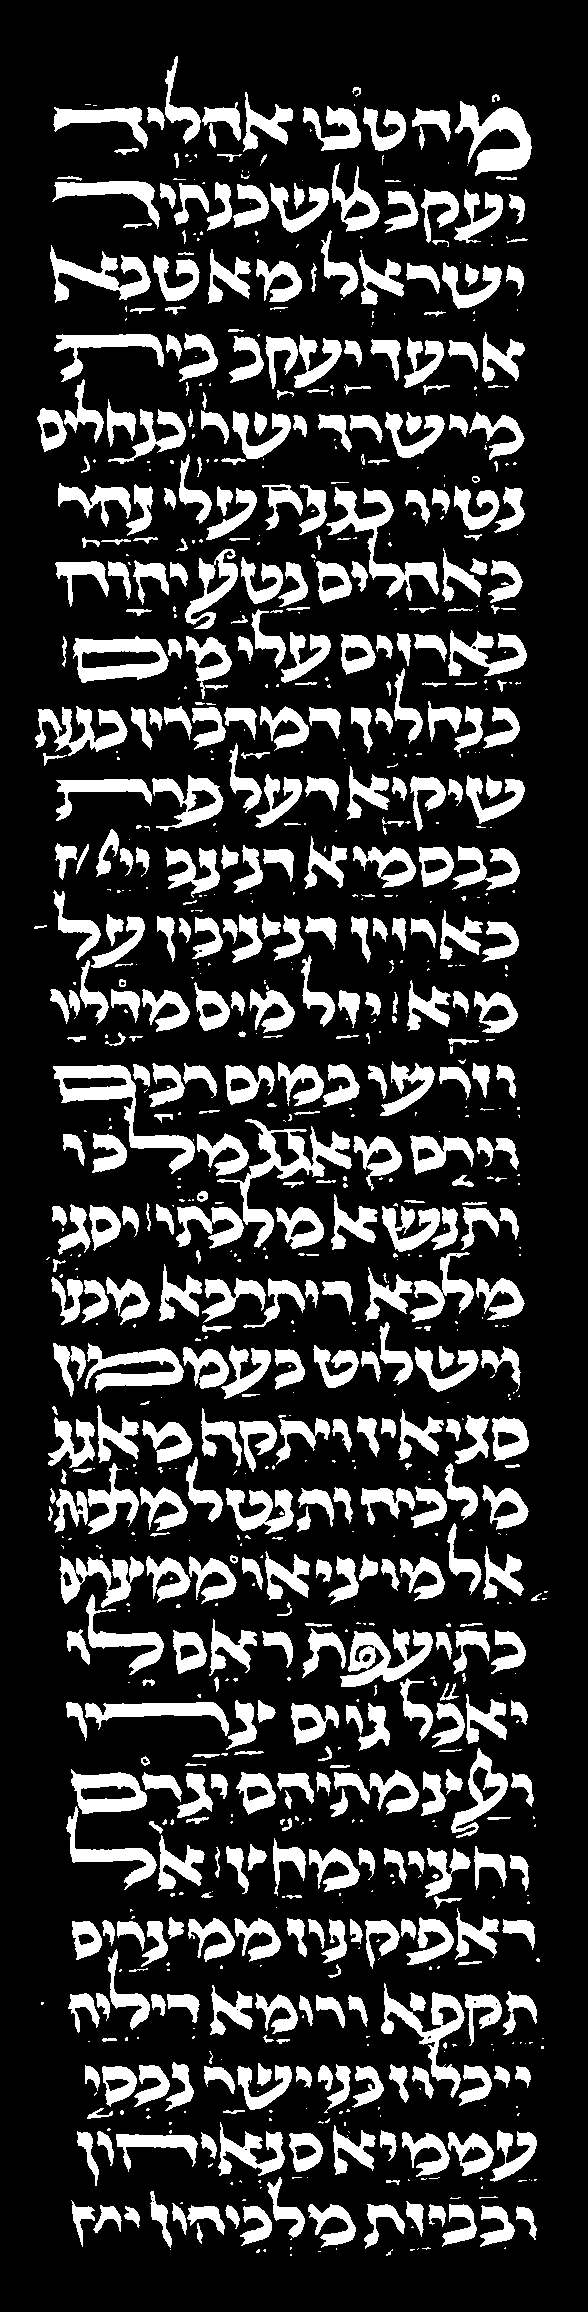 מה טבו אהליך
יעקב משכנתיך
ישראל מא טבא
ארעך יעקב בית
מישרך ישר כנחלים
נטיו כגנת עלי נהר
כאהלים נטע יהוה
כארזים עלי מים
כנחלין דמדברין כגנת
שיקיא דעל פרת
כבסמיא דניצב
כארזין דניציבין על
מיא יזל מים מדליו
וזרעו במים רבים
וירם מאגג מלכו
ותנשא מלכתו יסגי
מלכא דיתרבא מבנו
וישלוט בעממין
סגיאין ויתקף מאגג
מלכיה ותנטל מלכותי
אל מוציאו ממצרים
כתועפת ראם לו
יאכל גוים צריו
ועצמתיהם יגרם
וחציו ימחץ אל
דאפיקינון ממצרים
תקפא ורומא דיליה
ייכלון בני ישר נכסי
עממיא סנאיהון
ובביזת מלכיהון